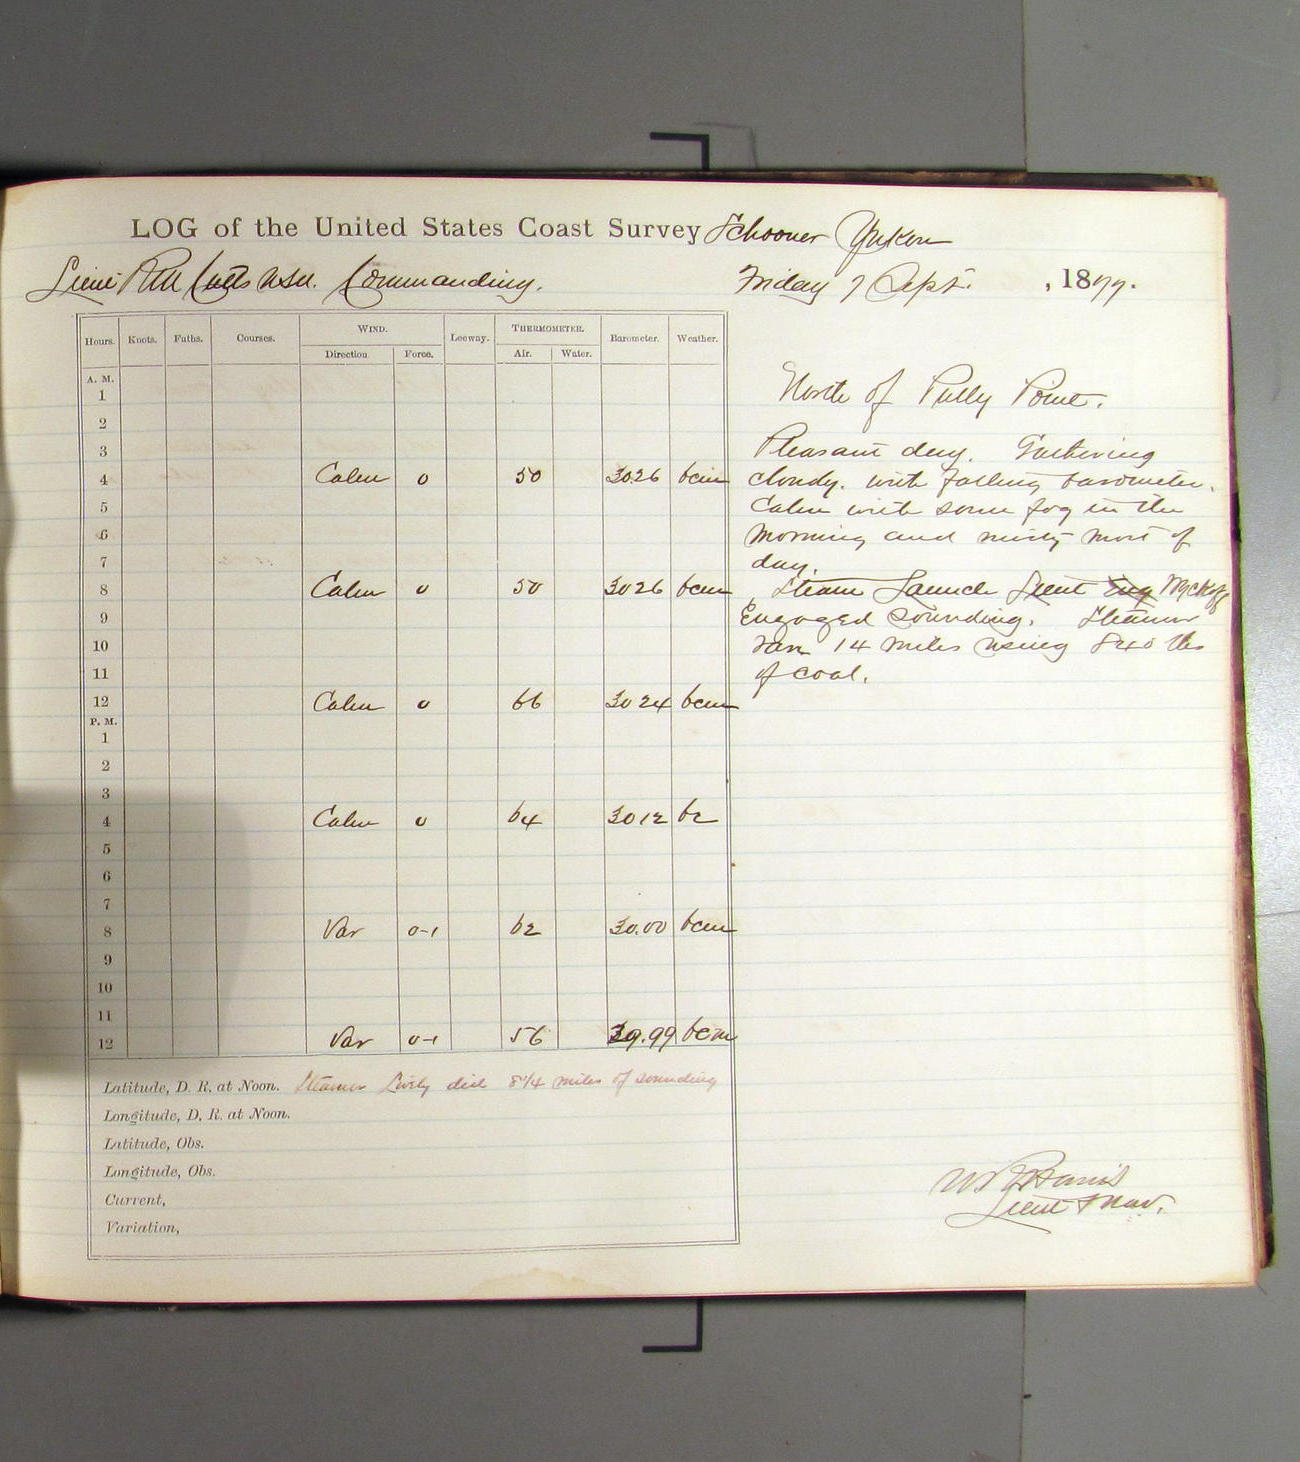 LOG of the United States Coast Survey Schooner Yukon
Lieut R M Cutts U.S.N. Commanding. Friday 7 Sept. , 1877.
Hours. Knots. Faths. Courses. WIND. Leeway. THERMOMETER. Barometer. Weather.
Direction Force. Air. Water.
A. M.
1
2
3
4 Calm 0 50 30.26 bcm
5
6
7
8 Calm 0 50 30 26 bcm
9
10
11
12 Calm 0 66 30 24 bcm
P. M.
1
2
3
4 Calm 0 64 30 12 bc
5
6
7
8 Var 0-1 62 30.00 bcm
9
10
11
12 Var 0-1 56 29.99 bcm
Latitude, D. R. at Noon. Steamer Lively did 8 1/4 miles of sounding
Longitude, D. R. at Noon.
Latitude, Obs.
Longitude, Obs.
Current,
Variation,
North of Pully Point.
Pleasant day. Gathering
cloudy. with falling barometer.
Calm with some fog in the
morning and misty most of
day.
Steam Launch Lieut Wyckoff
Engaged sounding. Steamer
ran 14 miles using 840 lbs
of coal.
Harris
Lieut & Nav.